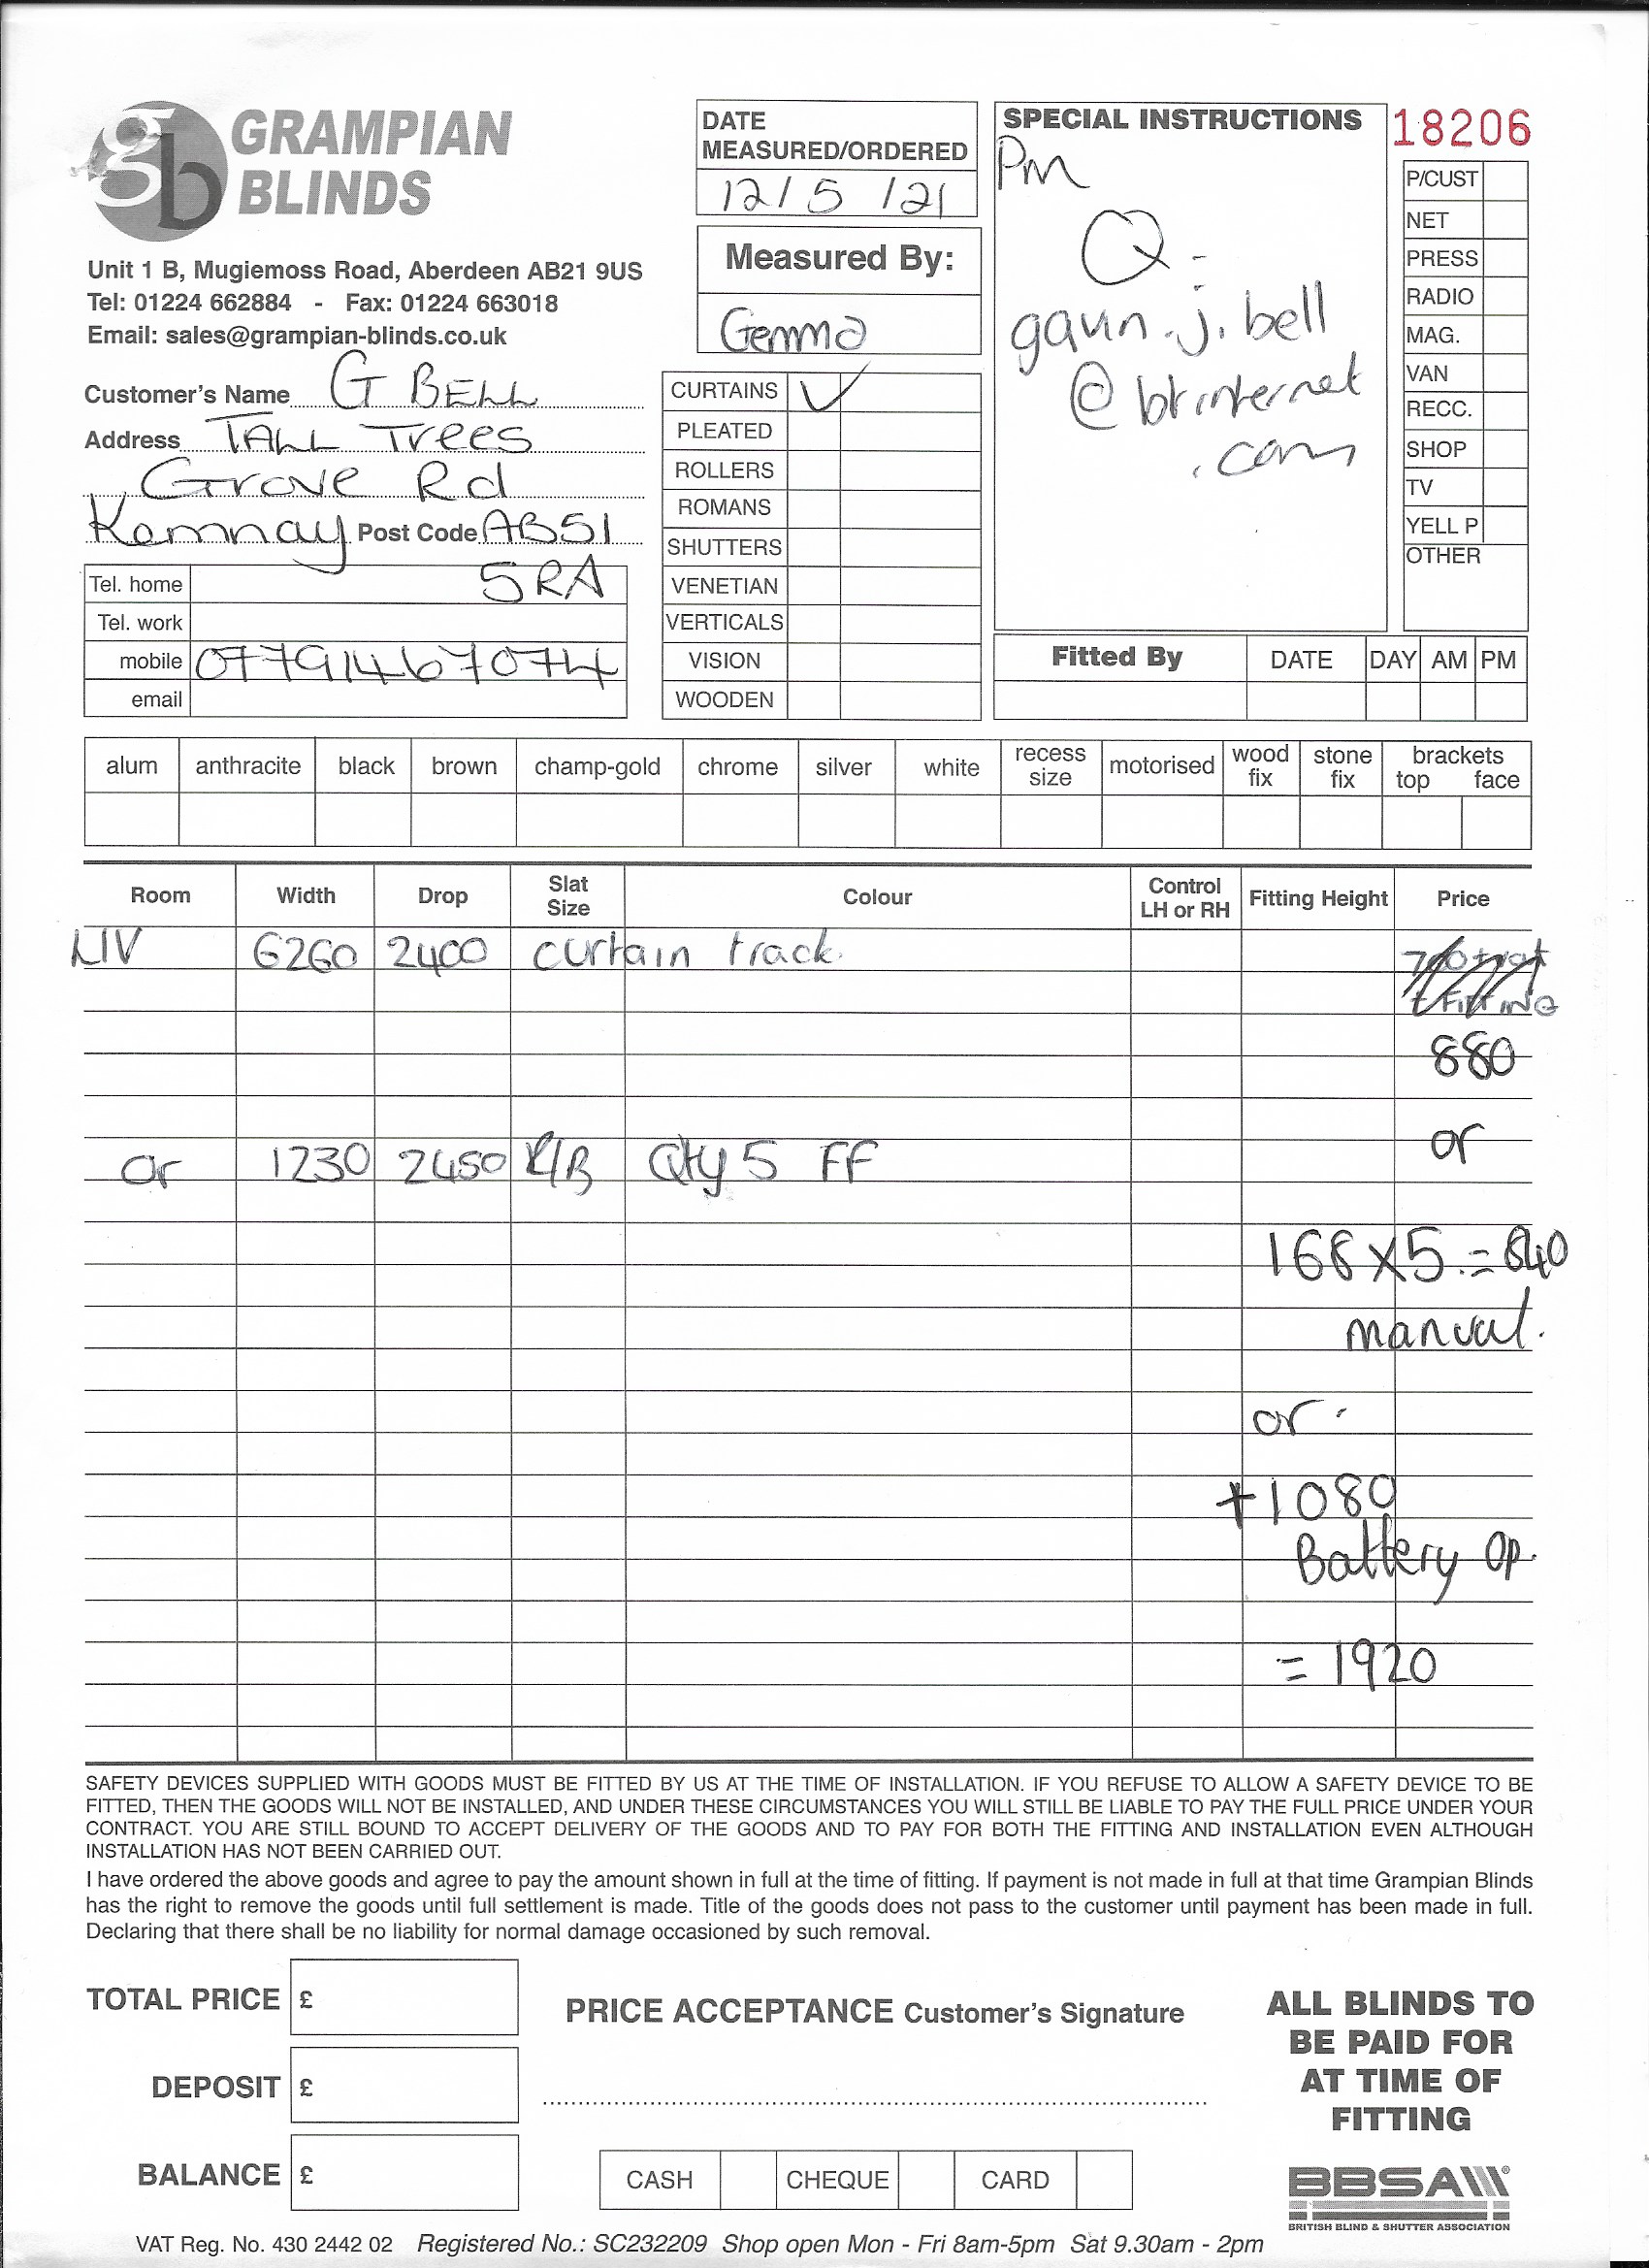 gb GRAMPIAN
BLINDS
Unit 1 B, Mugiemoss Road, Aberdeen AB21 9US
Tel: 01224 662884 - Fax: 01224 663018
Email: sales@grampian-blinds.co.uk
Customer's Name G BELL
Address TALL Trees
Grove Rd
Kemnay Post Code AB51
5RA
Tel. home
Tel. work
mobile 07791467074
email
DATE
MEASURED/ORDERED
12/5/21
Measured By:
Gemma
CURTAINS ✓
PLEATED
ROLLERS
ROMANS
SHUTTERS
VENETIAN
VERTICALS
VISION
WOODEN
SPECIAL INSTRUCTIONS
Pm
Q-
gavin.j.bell
@btinternet
.com
18206
P/CUST
NET
PRESS
RADIO
MAG.
VAN
RECC.
SHOP
TV
YELL P
OTHER
Fitted By DATE DAY AM PM
alum anthracite black brown champ-gold chrome silver white recess size motorised wood fix stone fix brackets top face
Room Width Drop Slat Size Colour Control LH or RH Fitting Height Price
LIV 6260 2400 curtain track
+ FITTING
880
or
or 1230 2450 R/B Qty 5 FF
168 x 5 = 840
manual.
or
+1080
Battery Op.
= 1920
SAFETY DEVICES SUPPLIED WITH GOODS MUST BE FITTED BY US AT THE TIME OF INSTALLATION. IF YOU REFUSE TO ALLOW A SAFETY DEVICE TO BE
FITTED, THEN THE GOODS WILL NOT BE INSTALLED, AND UNDER THESE CIRCUMSTANCES YOU WILL STILL BE LIABLE TO PAY THE FULL PRICE UNDER YOUR
CONTRACT. YOU ARE STILL BOUND TO ACCEPT DELIVERY OF THE GOODS AND TO PAY FOR BOTH THE FITTING AND INSTALLATION EVEN ALTHOUGH
INSTALLATION HAS NOT BEEN CARRIED OUT.
I have ordered the above goods and agree to pay the amount shown in full at the time of fitting. If payment is not made in full at that time Grampian Blinds
has the right to remove the goods until full settlement is made. Title of the goods does not pass to the customer until payment has been made in full.
Declaring that there shall be no liability for normal damage occasioned by such removal.
TOTAL PRICE £
DEPOSIT £
BALANCE £
PRICE ACCEPTANCE Customer's Signature
CASH CHEQUE CARD
ALL BLINDS TO
BE PAID FOR
AT TIME OF
FITTING
BBSA
BRITISH BLIND & SHUTTER ASSOCIATION
VAT Reg. No. 430 2442 02 Registered No.: SC232209 Shop open Mon - Fri 8am-5pm Sat 9.30am - 2pm